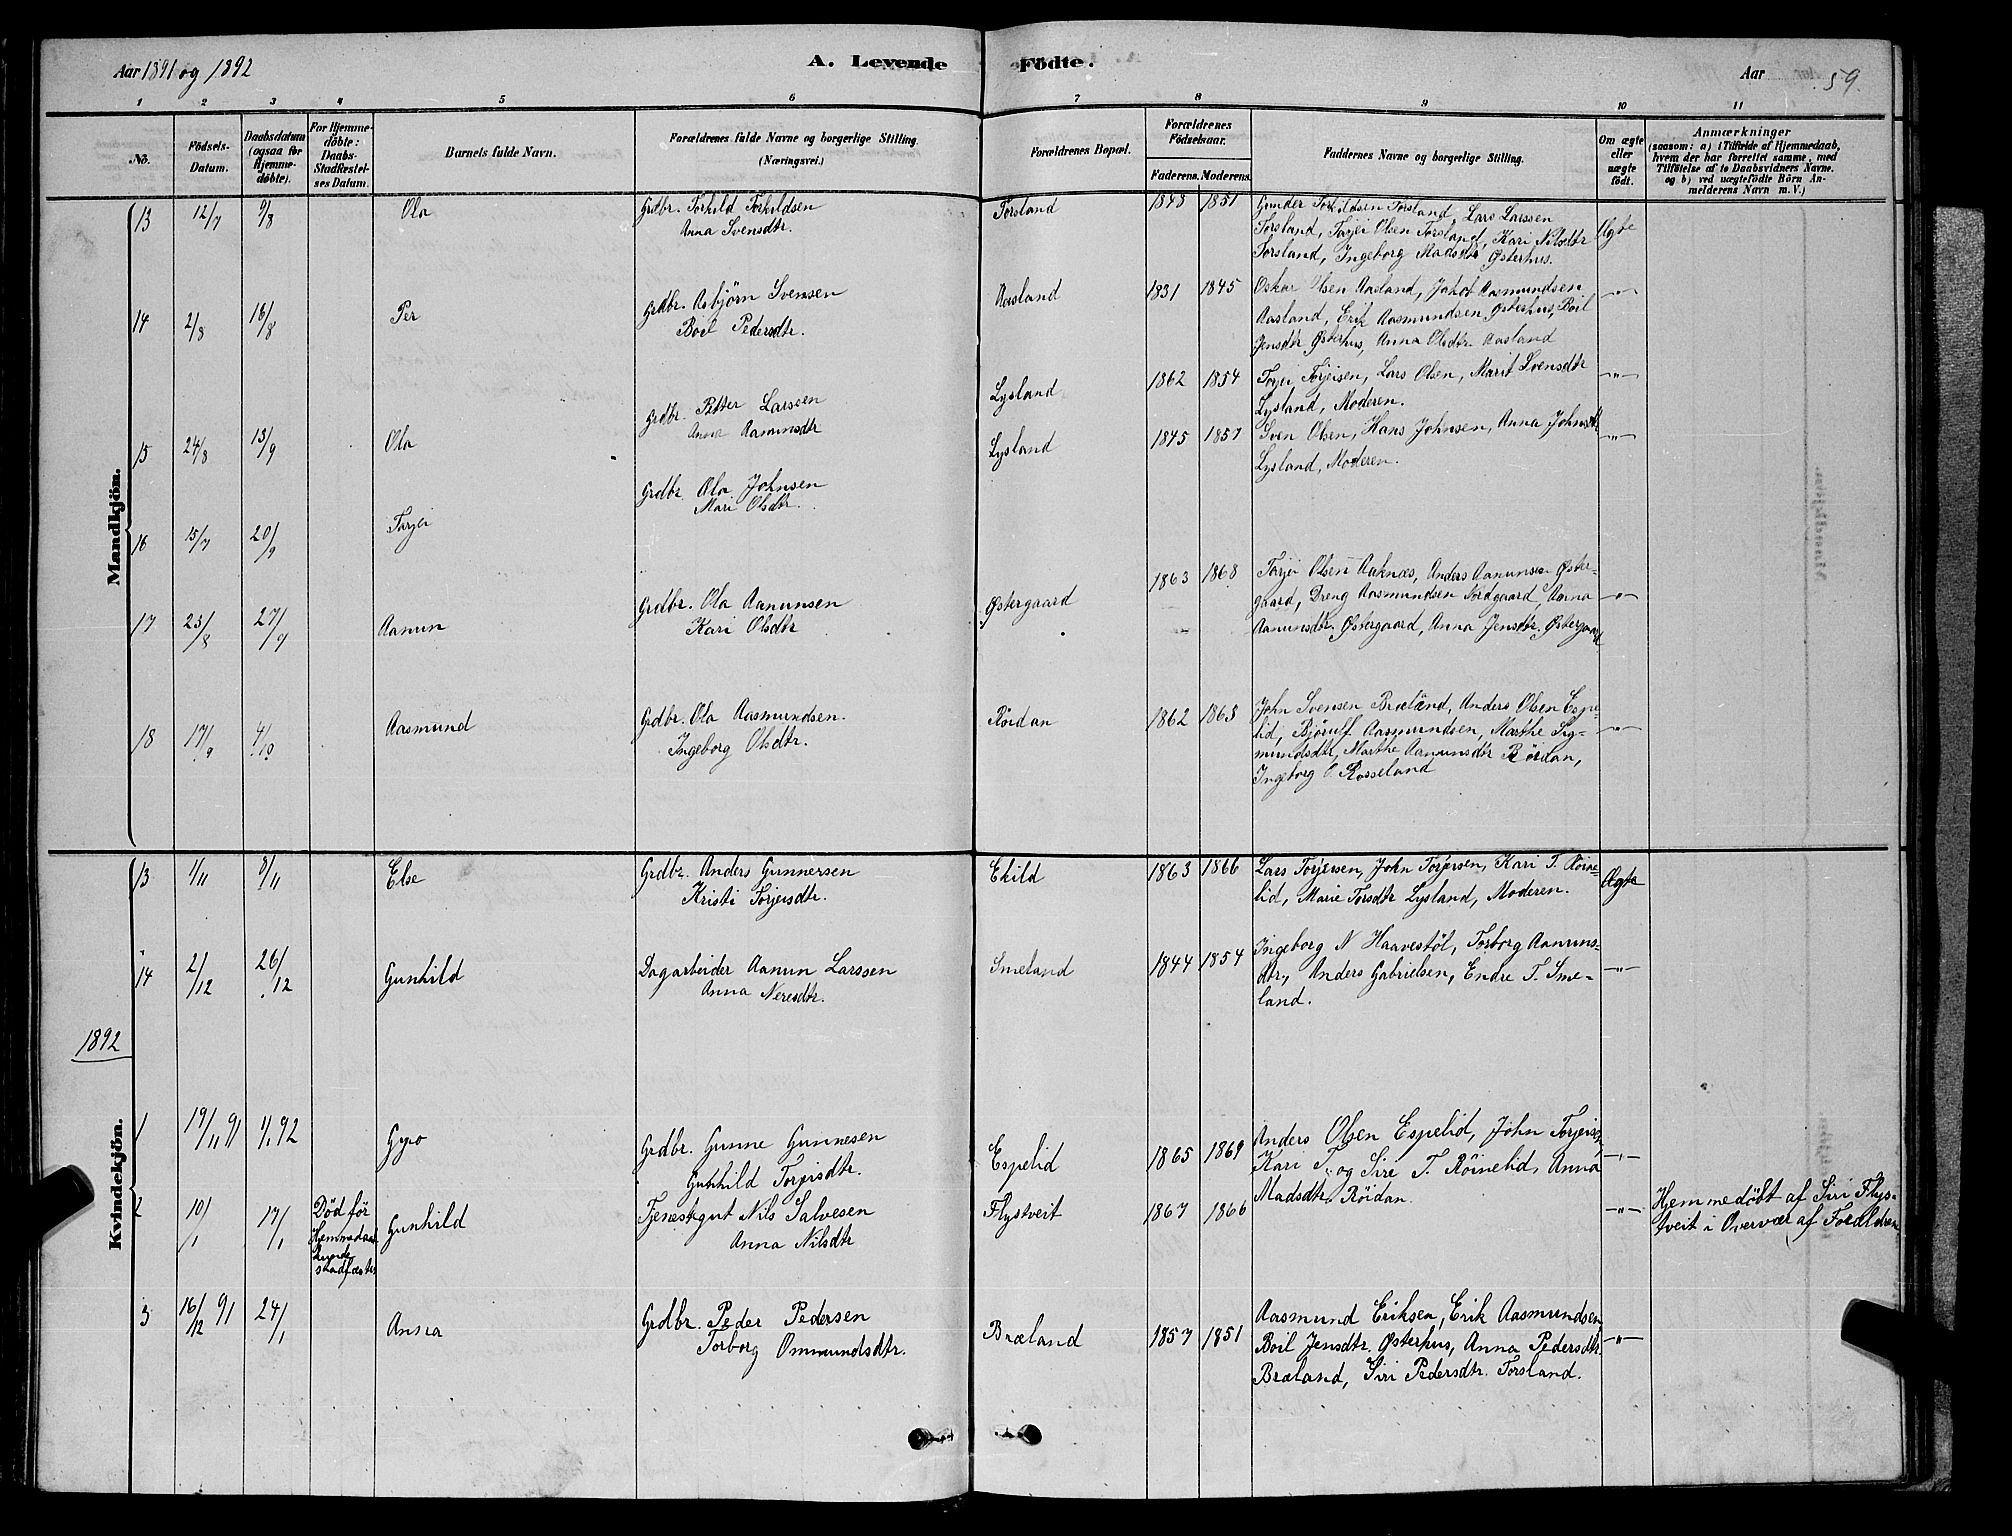 Aar 1891 og 1892
A. Levende Födte.
Aar 59.
1 2 3 4 5 6 7 8 9 10 11
No.
Födsels-Datum.
Daabsdatum (ogsaa for Hjemme-döbte).
For Hjemme-döbte: Daabs-Stadfæstel-ses Datum.
Barnets fulde Navn.
Forældrenes fulde Navne og borgerlige Stilling.
(Næringsvei.)
Forældrenes Bopæl.
Forældrenes Födselsaar.
Faderens. Moderens.
Faddernes Navne og borgerlige Stilling.
Om ægte eller uægte födt.
Anmærkninger
(saasom: a) i Tilfælde af Hjemmedaab,
hvem der har forrettet samme, med
Tilföielse af to Daabsvidners Navne.
og b) ved uægtefödte Börn An-
melderens Navn m. V.)
Mandkjön.
13 12/7 9/8 Ola Grdbr. Torkild Torkildsen
Anna Svensdtr. Torsland 1843 1851 Gunder Torkildsen Torsland, Lars Larssen
Torsland, Torjei Olsen Torsland, Kari Nilsdtr Ægte
Torsland, Ingeborg Madsdtr Østerhus.
14 2/8 16/8 Per Grdbr. Asbjörn Svensen
Boil Pedersdtr. Aasland 1831 1845 Oskar Olsen Aasland, Jakob Aasmundsen —"—
Aasland, Erik Aasmundsen Østerhus, Boil
Jensdtr Østerhus, Anna Olsdtr. Aasland
15 24/8 13/9 Ola Grdbr. Petter Larssen
Anna Aanunsdtr Lysland 1862 1854 Torjei Torjeisen, Lars Olsen, Marit Svensdtr —"—
Lysland, Moderen.
16 15/7 20/9 Torjei Grdbr. Ola Johnsen
Mari Olsdtr. Lysland 1845 1857 Sven Olsen, Hans Johnsen, Anna Johnsdtr —"—
Lysland, Moderen.
17 23/8 27/9 Aanun Grdbr. Ola Aanunsen
Kari Olsdtr Østergaard 1863 1868 Torjei Olsen Aaknæs, Anders Aanunsen Øster-
gaard, Dreng Aasmundsen Nordgaard, Anna —"—
Aanunsdtr. Østergaard, Anna Jensdtr. Østergaard
18 17/9 4/10 Aasmund Grdbr. Ola Aasmundsen.
Ingeborg Olsdtr. Röidan 1862 1863 John Svensen Bræland, Anders Olsen Espe-
lid, Björulf Aasmundsen, Marthe Sig- —"—
mundsdtr, Marthe Aanunsdtr Röidan,
Ingeborg O. Rosseland
Kvindekjön.
13 1/11 8/11 Else Grdbr. Anders Gunnersen
Kristi Torjeisdtr. Ekild 1863 1866 Lars Torjeisen, John Torjeisen, Kari T. Röine-
lid, Marie Torsdtr Lysland, Moderen. Ægte
14 2/12 26/12 Gunhild Dagarbeider Aanun Larssen
Anna Neresdtr. Smeland 1844 1854 Ingeborg N Haavestöl, Torborg Aanuns-
dtr., Anders Gabrielsen, Endre T. Sme- —"—
land.
1892
1 19/11 91 1/1 92 Gyro Grdbr. Gunne Gunnesen
Gunhild Torjeisdtr. Espelid 1865 1869 Anders Olsen Espelid, John Torjeisen,
Kari T. og Siri T. Röinelid, Anna —"—
Madsdtr. Röidan.
2 10/1 17/1 Död för
Hjemmedaab
kunde
stadfæstes Gunhild Tjenestegut Nils Salvesen
Anna Nilsdtr Flystveit 1867 1866 —"— Hjemmedöbt af Siri Flys-
tveit i Overvær af Foreldrene
3 16/12 91 24/1 Anna Grdbr. Peder Pedersen
Torborg Ommundsdtr. Bræland 1857 1851 Aasmund Eriksen, Erik Aasmundsen,
Boil Jensdtr. Østerhus, Anna Pedersdtr. —"—
Bræland, Siri Pedersdtr. Torsland.